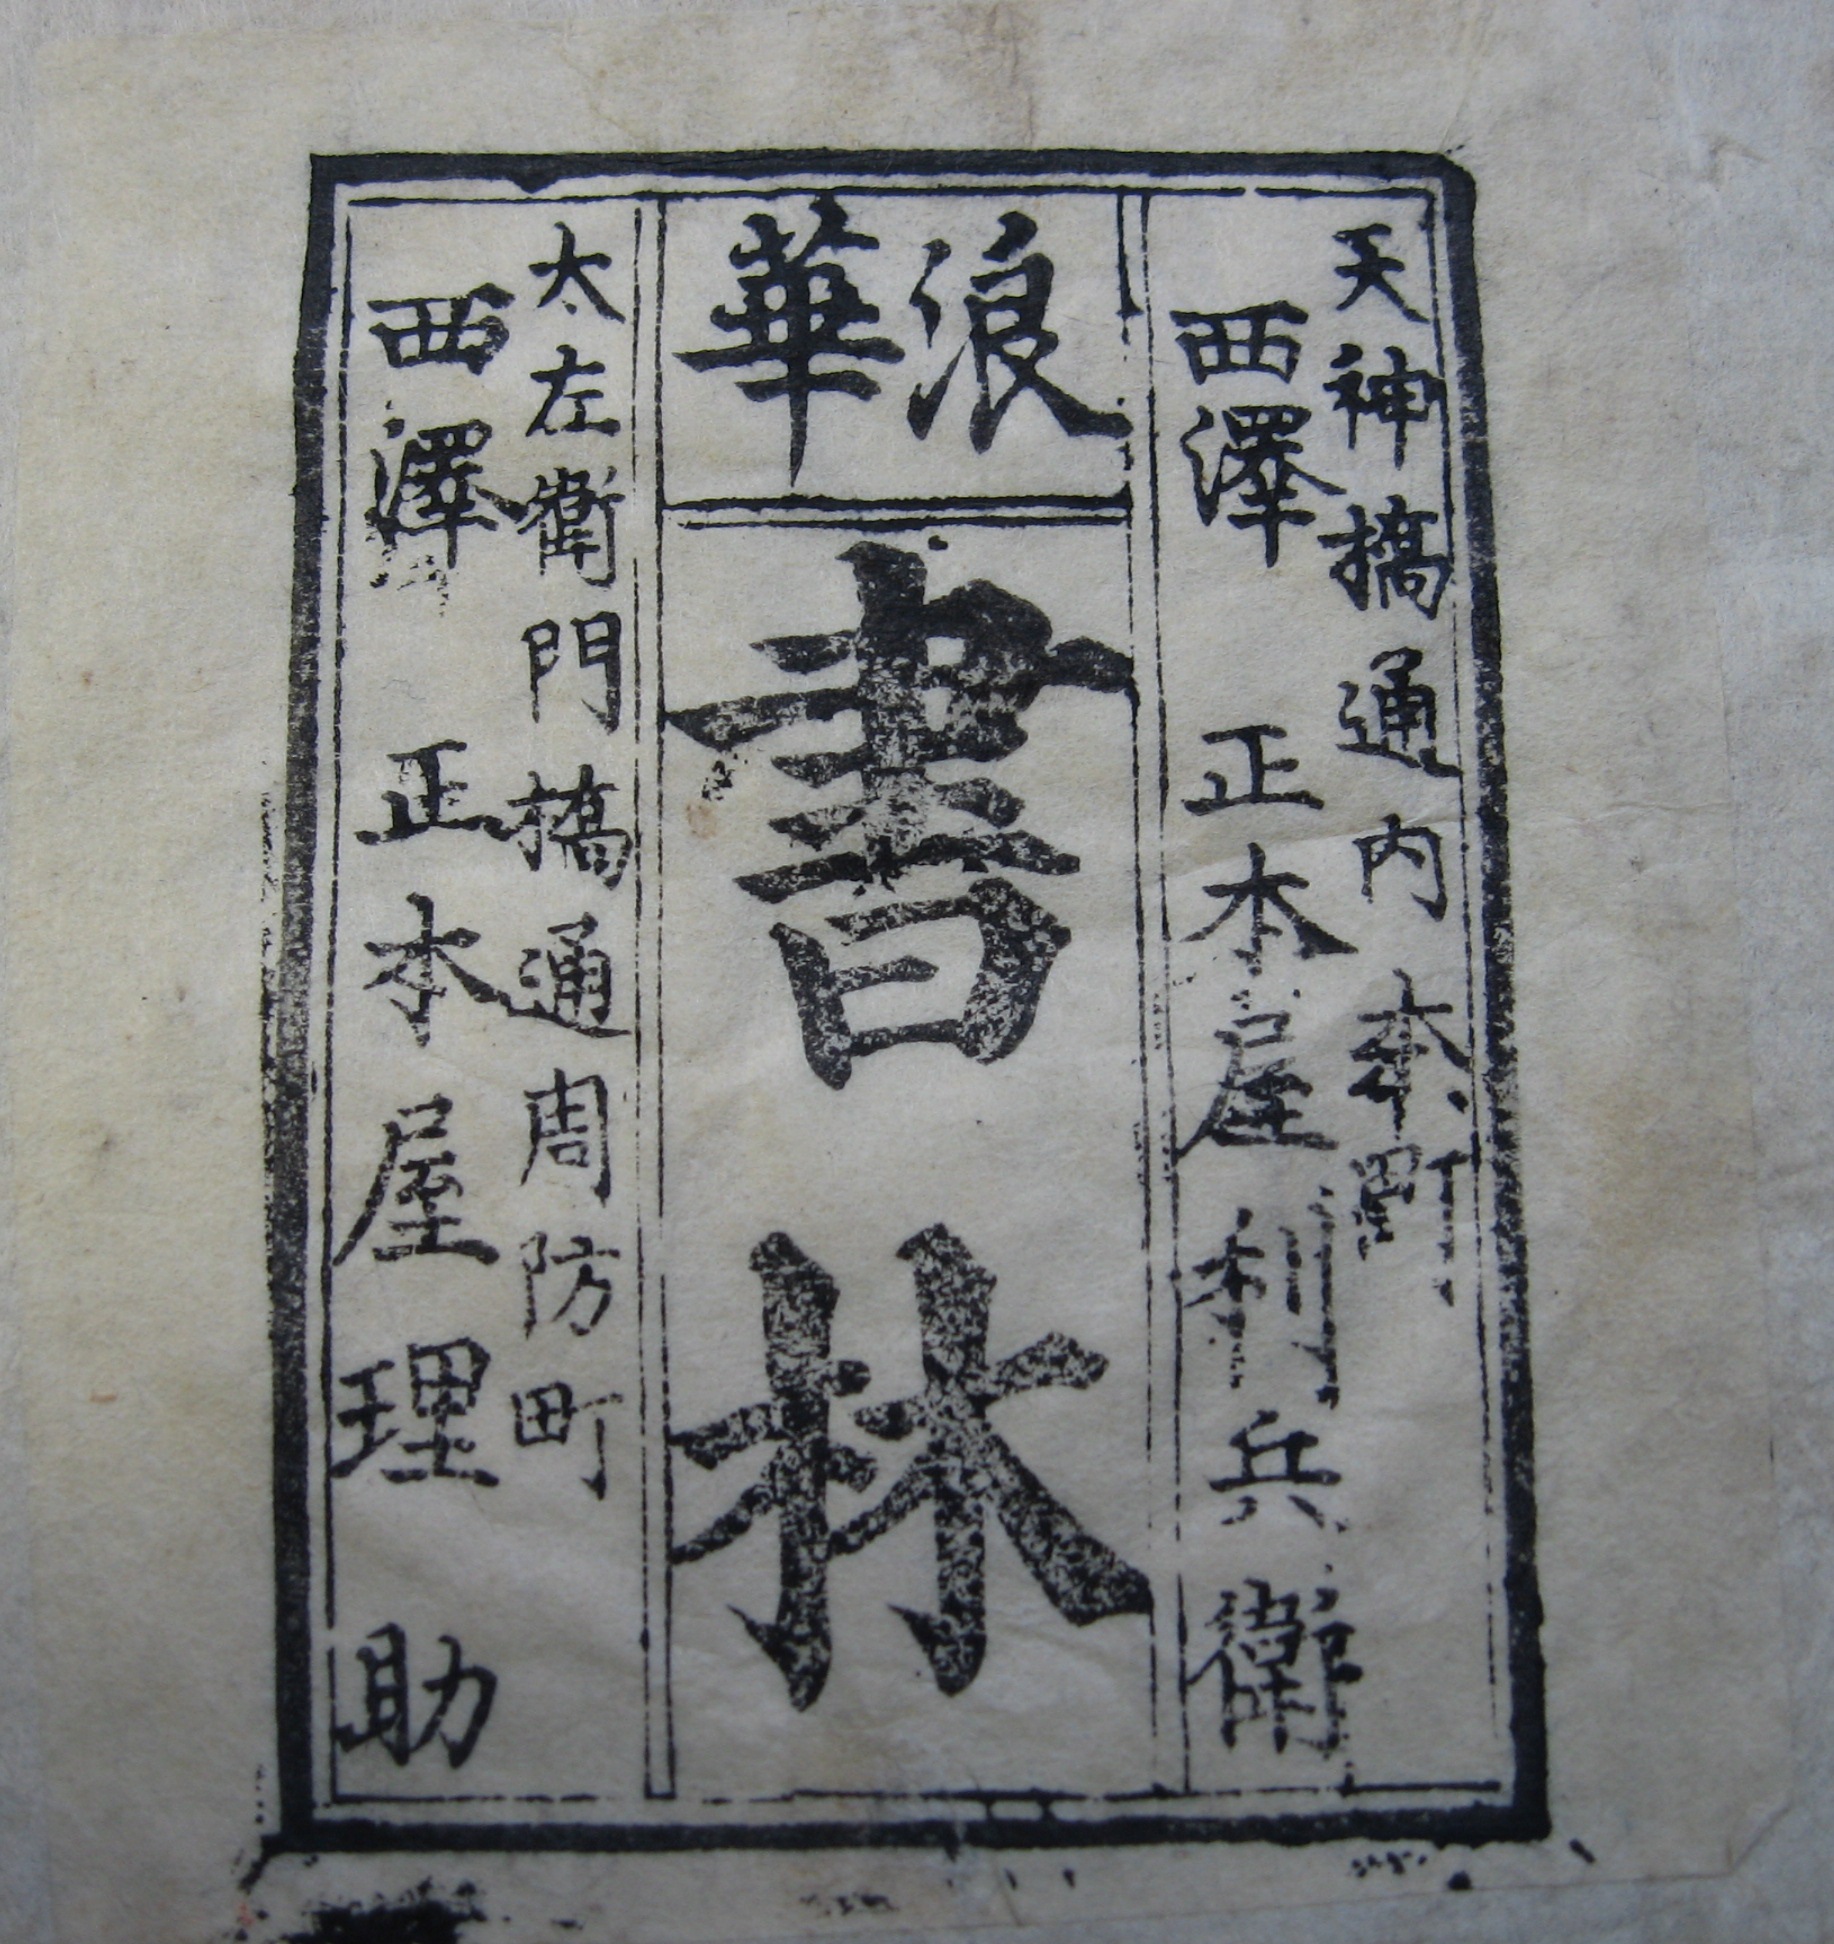 天神橋通内本町
西澤 正本屋利兵衛
浪華
書林
太左衛門橋通周防町
西澤 正本屋理助